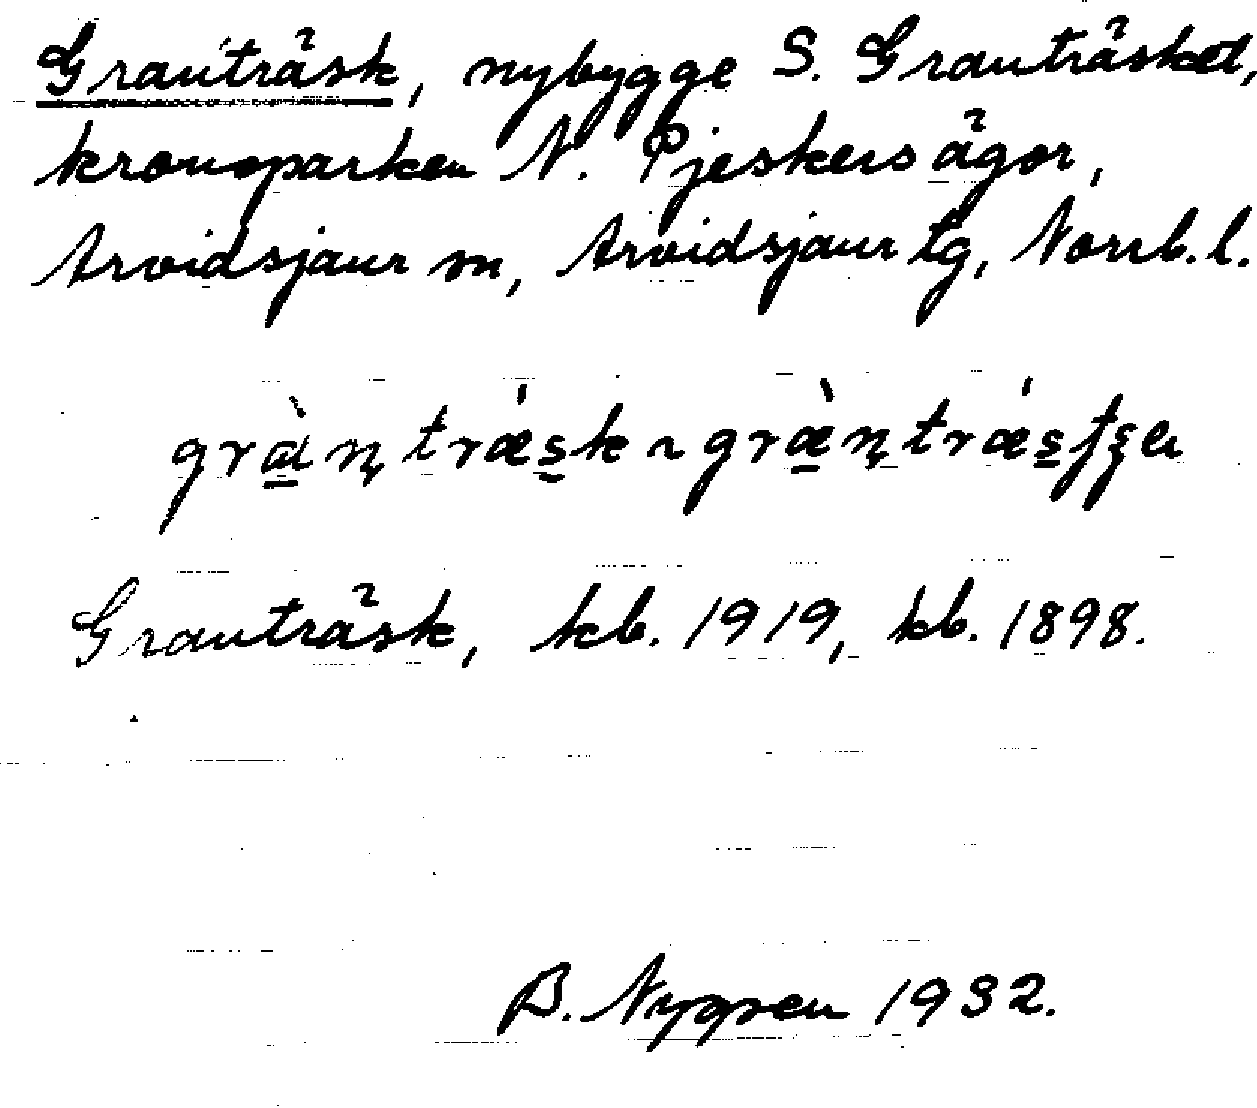 Granträsk, nybygge S. Granträsket,
kronoparken N. Pjeskers ägor,
Arvidsjaur sn, Arvidsjaur tg, Norrb. l.
Granträsk, kb. 1919, kb. 1898.
B. Nygren 1932.